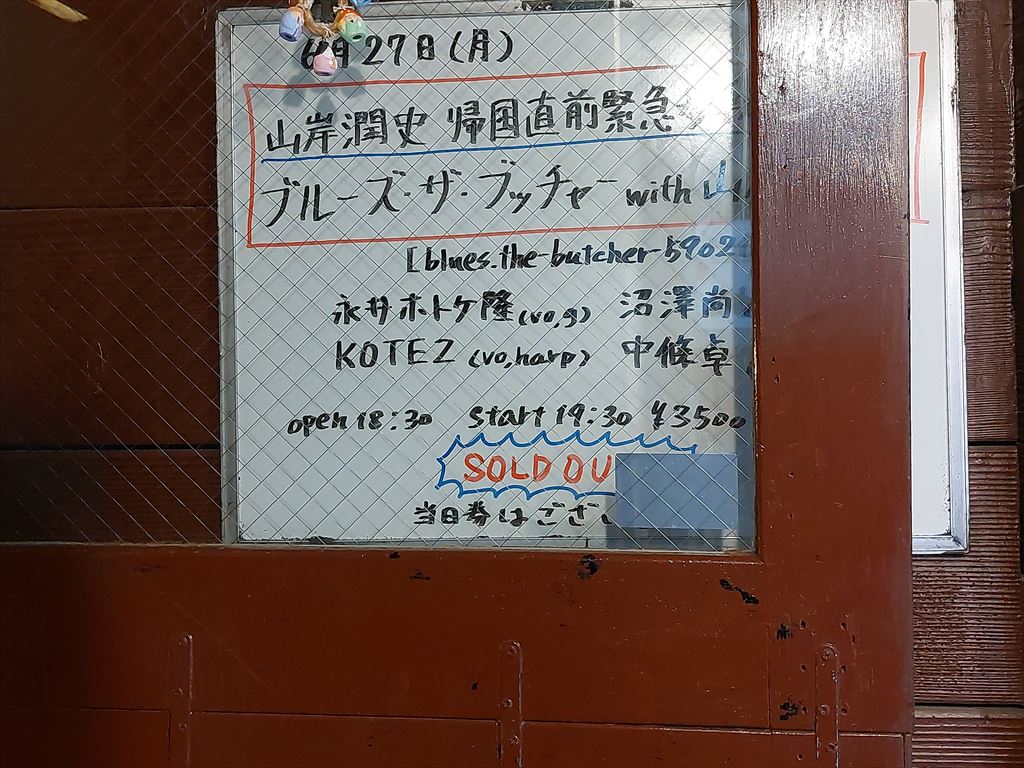 6月27日(月)
山岸潤史 帰国直前緊急
ブルーズ・ザ・ブッチャー with
[blues.the-butcher-59021
永井ホトケ隆(vo,g) 沼澤尚
KOTEZ (vo,harp) 中條卓
open 18:30 start 19:30 ¥3500
SOLD OU
当日券はござ